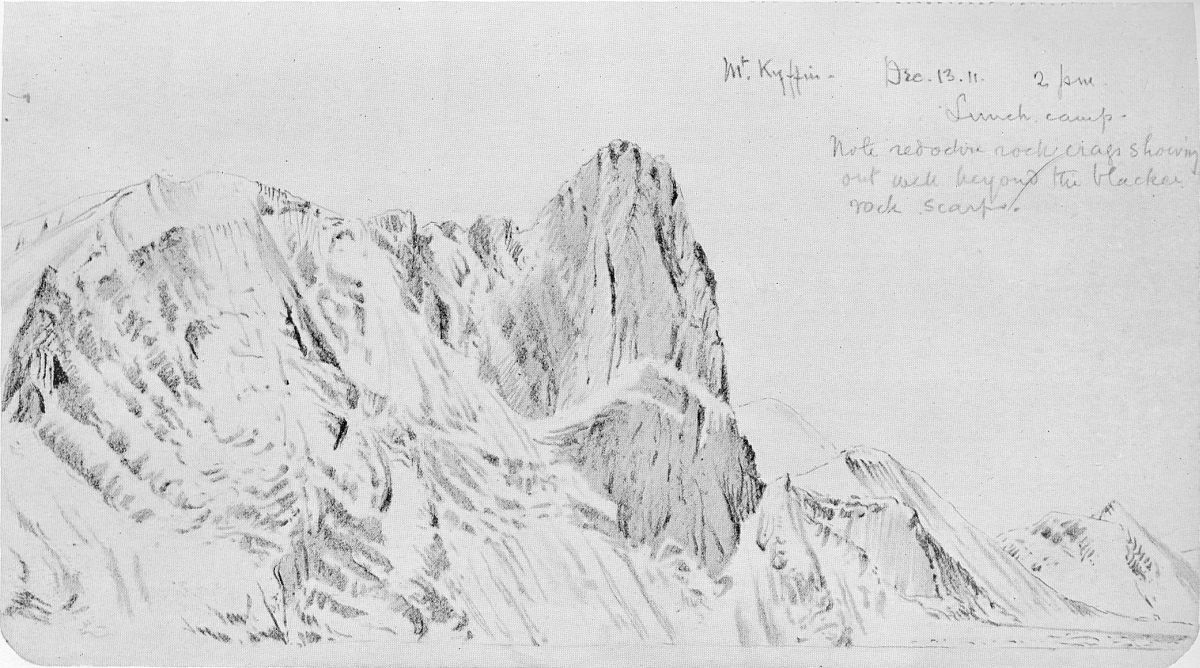 Mt. Kyffin - Dec. 13. 11. 2 pm.
Lunch camp -
Note red ochre rock crags showing
out well beyond the blacker
rock scarp.